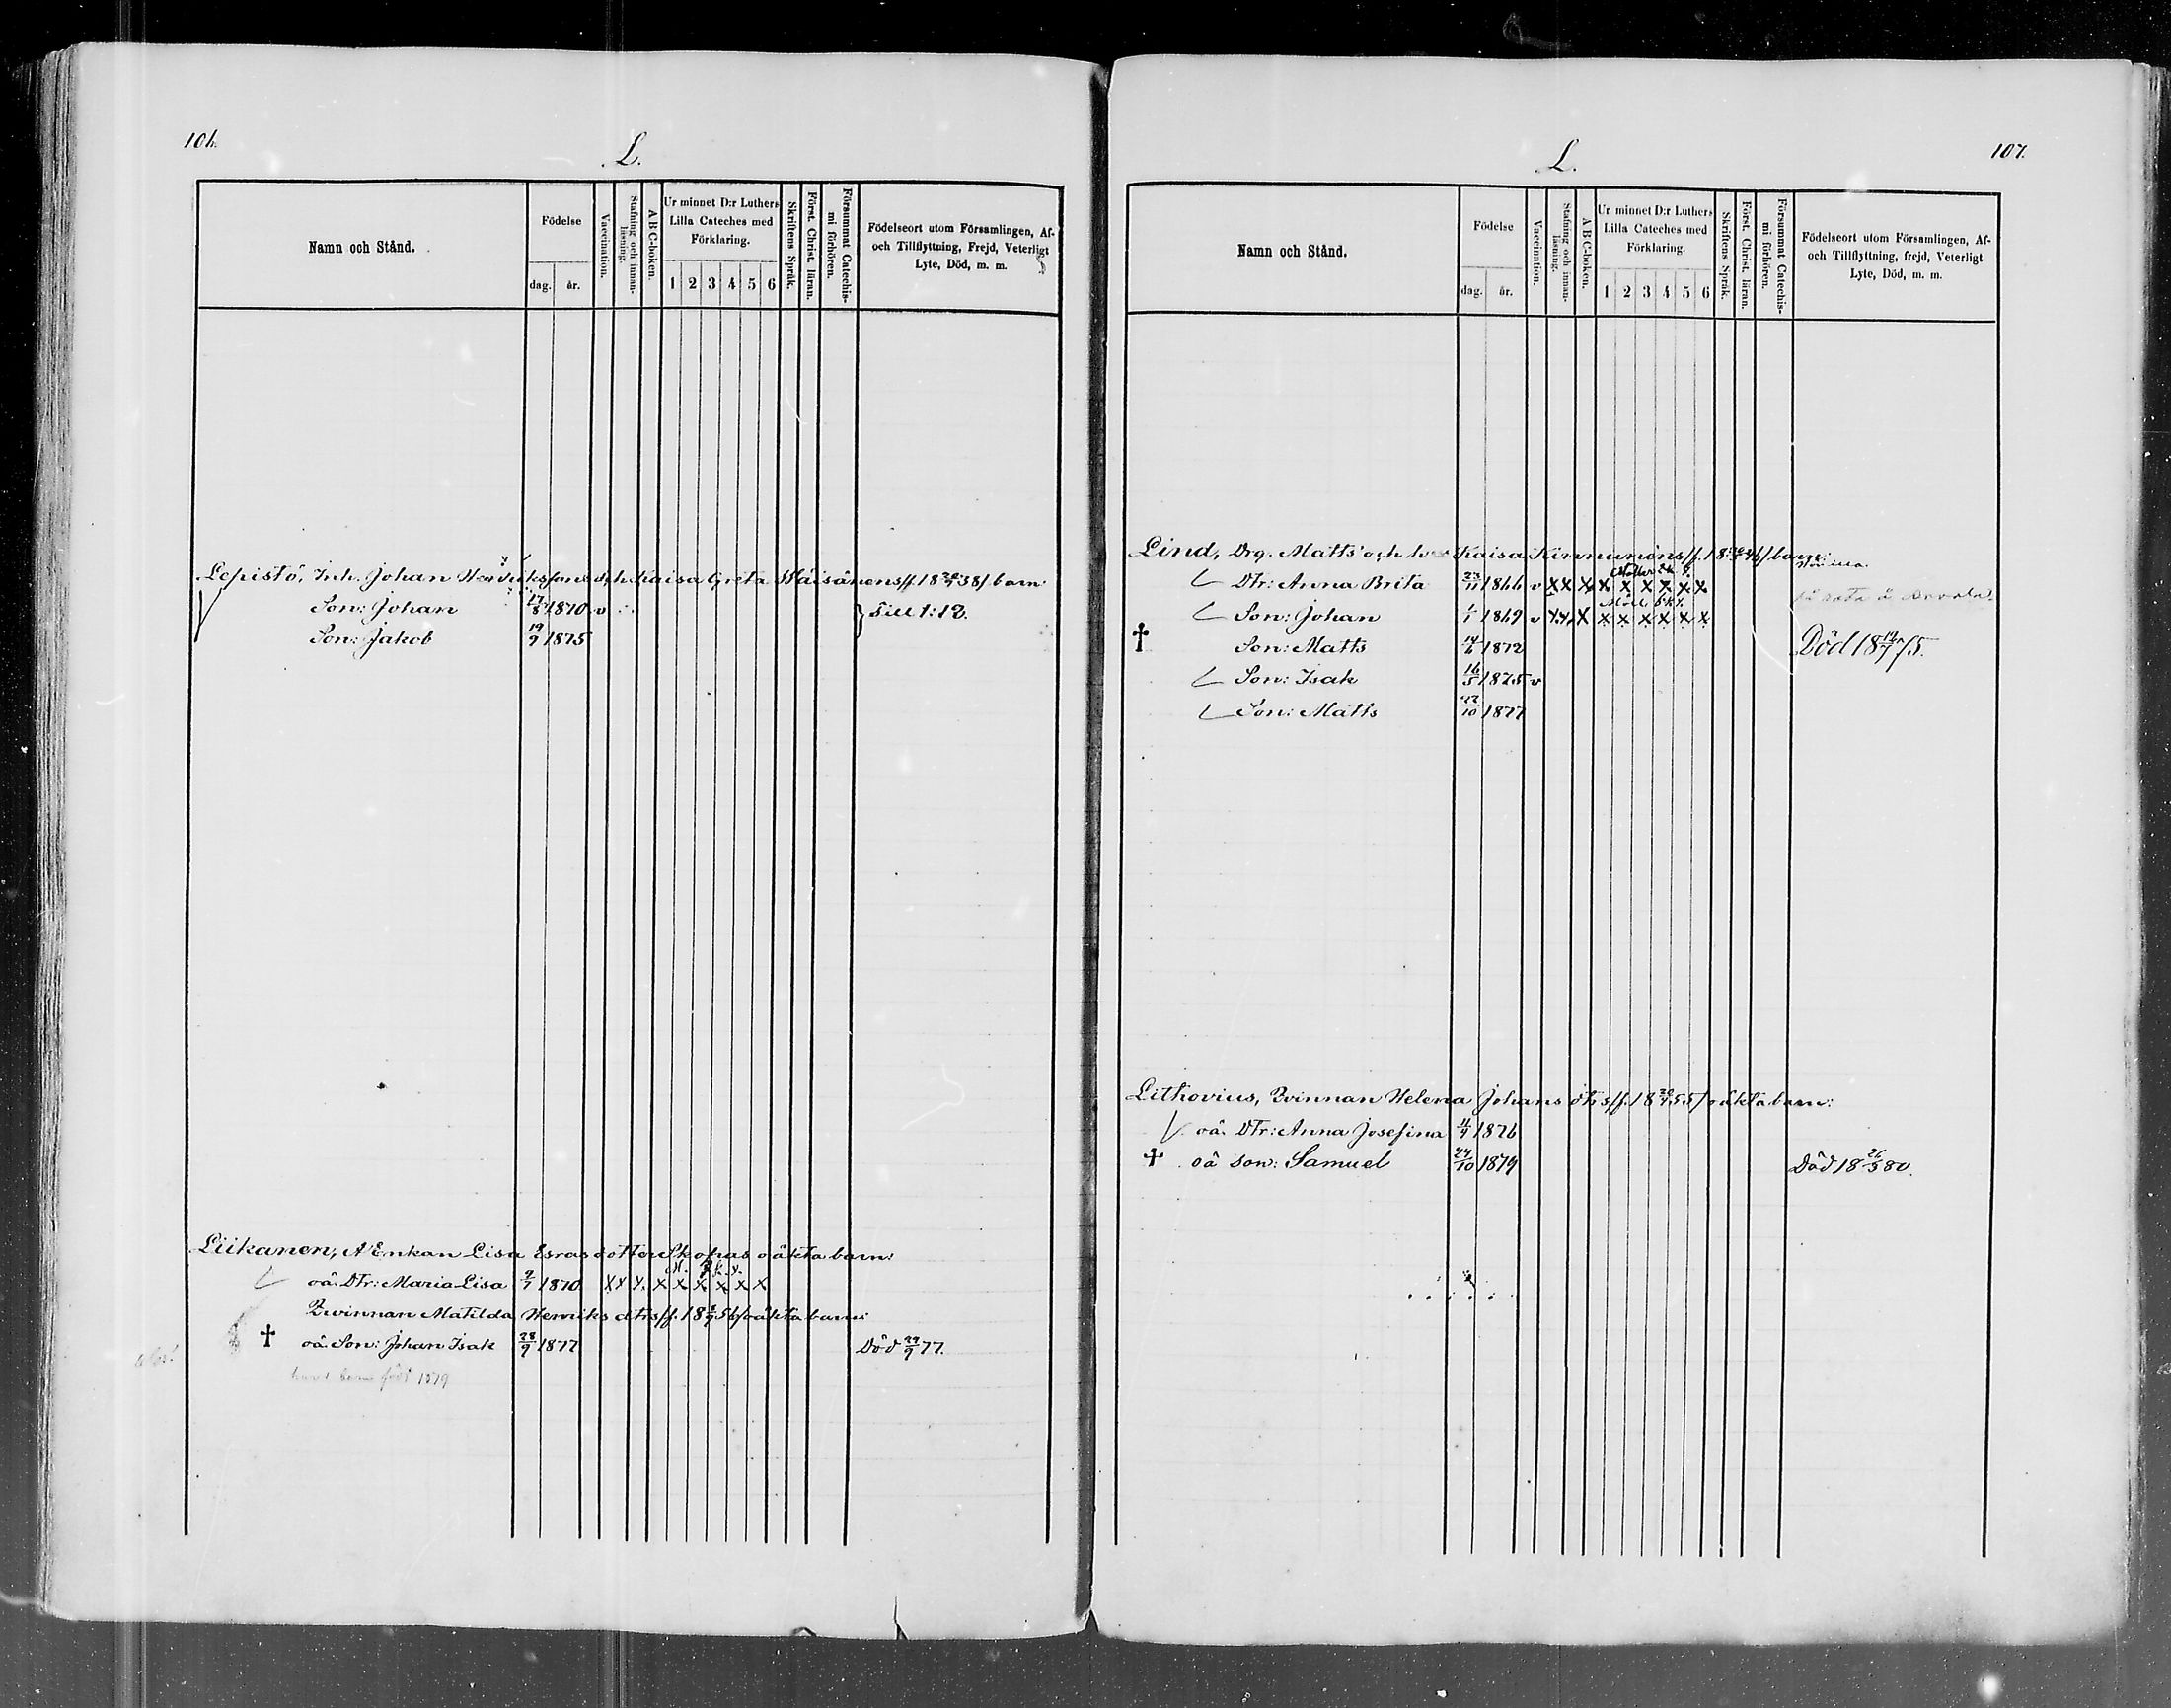 106.
L.
Namn och Stånd.
Födelse
dag. år.
Vaccination.
Stafning och innan-läsning.
ABC-boken.
Ur minnet D:r Luthers
Lilla Cateches med
Förklaring.
1 2 3 4 5 6
Skriftens Språk.
Först. Christ. läran.
Försummat Catechis-mi förhören.
Födelseort utom Församlingen, Af-
och Tillflyttning, Frejd, Veterligt
Lyte, Död, m. m.
Lepistö, Inh. Johan Hendriksons och Kaisa Greta Wäisänens /f. 18 38/ barn:
Son: Johan 17/8 1870 v } Till 1:12.
Son: Jakob 19/9 1875
Liikanen, N Enkan Lisa Esrasdotter Skopas oäkta barn:
oä. Dtr: Maria Lisa 9/7 1870 X X X X X X X X X
Qvinnan Matilda Henriks dtrs /f. 18 56/ oäkta barn:
† oä. Son: Johan Isak 28/9 1877 Död 29/9 77.
barn född 1879
107.
L.
Namn och Stånd.
Födelse
dag. år.
Vaccination.
Stafning och innan-läsning.
ABC-boken.
Ur minnet D:r Luthers
Lilla Cateches med
Förklaring.
1 2 3 4 5 6
Skriftens Språk.
Först. Christ. läran.
Försummat Catechis-mi förhören.
Födelseort utom Församlingen, Af-
och Tillflyttning, frejd, Veterligt
Lyte, Död, m. m.
Lind, Drg. Matts' och h Kaisa Kinnunens /f. 18 / barn:
Dtr: Anna Brita 23/11 1866 v X X X X X X X X X
Son: Johan 1/1 1869 v X X X X X X X X X
† Son: Matts 14/6 1872 Död 18 75.
Son: Isak 16/5 1875 v
Son: Matts 22/10 1877
Lithovius, Qvinnan Helena Johans dtrs /f. 18 55/ oäkta barn:
oä. Dtr: Anna Josefina 11/9 1876
† oä Son: Samuel 24/10 1879 Död 18 26/5 80.